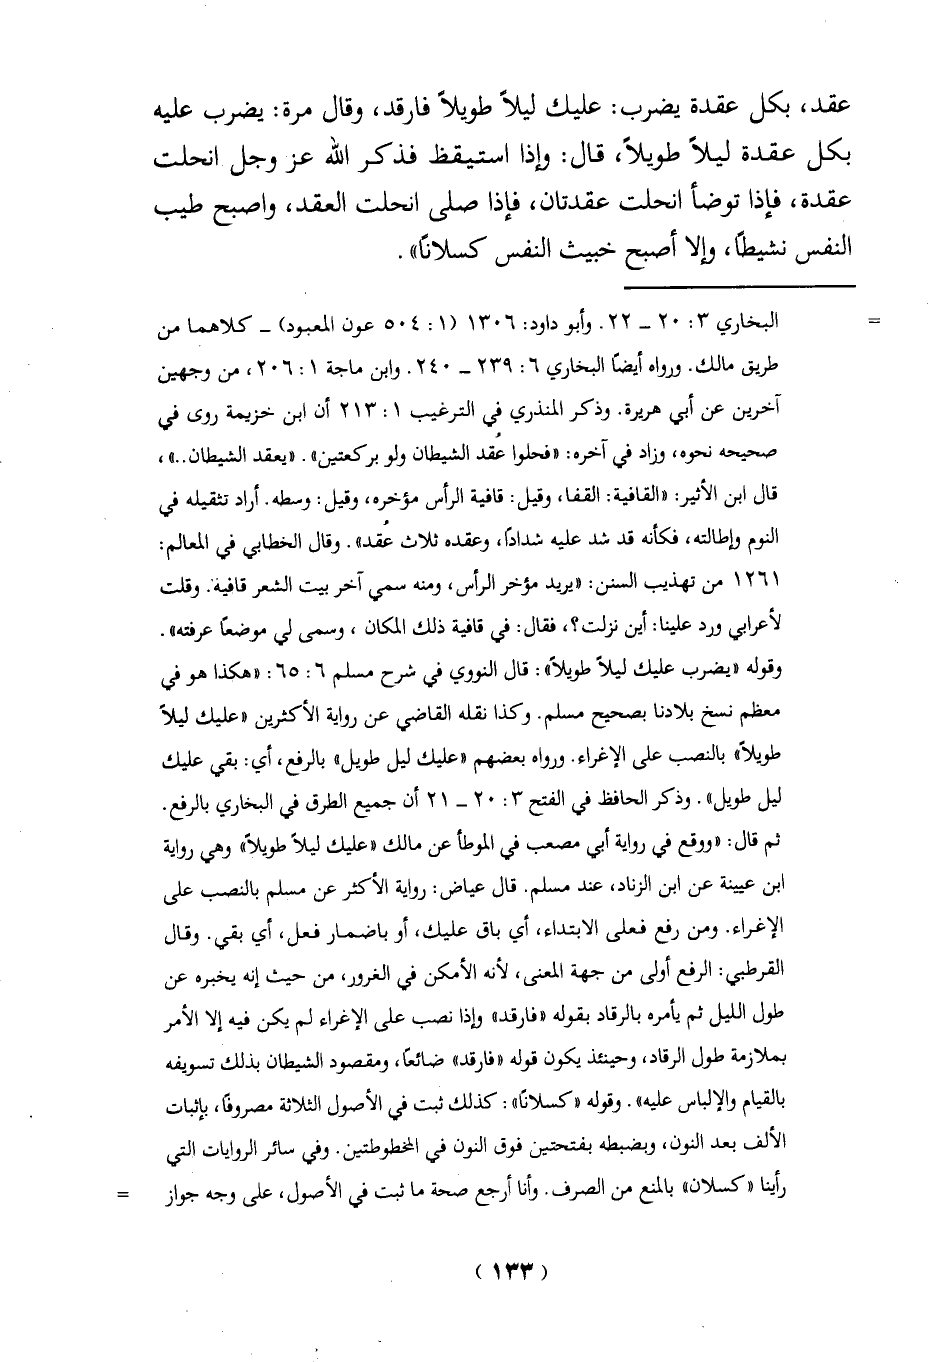 عقد، بكل عقدة يضرب: عليك ليلاً طويلاً فارقد، وقال مرة: يضرب عليه
بكل عقدة ليلاً طويلاً، قال: وإذا استيقظ فذكر الله عز وجل انحلت
عقدة، فإذا توضأ انحلت عقدتان، فإذا صلى انحلت العقد، واصبح طيب
النفس نشيطًا، وإلا أصبح خبيث النفس كسلانًا».
= البخاري ٣: ٢٠ ــ ٢٢. وأبو داود: ١٣٠٦ (١: ٥٠٤ عون المعبود) ــ كلاهما من
طريق مالك. ورواه أيضًا البخاري ٦: ٢٣٩ ــ ٢٤٠. وابن ماجة ١: ٢٠٦، من وجهين
آخرين عن أبي هريرة. وذكر المنذري في الترغيب ١: ٢١٣ أن ابن خزيمة روى في
صحيحه نحوه، وزاد في آخره: «فحلوا عُقد الشيطان ولو بركعتين». «يعقد الشيطان..»،
قال ابن الأثير: «القافية: القفا، وقيل: قافية الرأس مؤخره، وقيل: وسطه. أراد تثقيله في
النوم وإطالته، فكأنه قد شد عليه شدادًا، وعقده ثلاث عُقد». وقال الخطابي في المعالم:
١٢٦١ من تهذيب السنن: «يريد مؤخر الرأس، ومنه سمي آخر بيت الشعر قافية. وقلت
لأعرابي ورد علينا: أين نزلت؟، فقال: في قافية ذلك المكان، وسمى لي موضعًا عرفته».
وقوله «يضرب عليك ليلاً طويلاً»: قال النووي في شرح مسلم ٦: ٦٥: «هكذا هو في
معظم نسخ بلادنا بصحيح مسلم. وكذا نقله القاضي عن رواية الأكثرين «عليك ليلاً
طويلاً» بالنصب على الإغراء. ورواه بعضهم «عليك ليل طويل» بالرفع، أي: بقي عليك
ليل طويل». وذكر الحافظ في الفتح ٣: ٢٠ ــ ٢١ أن جميع الطرق في البخاري بالرفع.
ثم قال: «ووقع في رواية أبي مصعب في الموطأ عن مالك «عليك ليلاً طويلاً» وهي رواية
ابن عيينة عن ابن الزناد، عند مسلم. قال عياض: رواية الأكثر عن مسلم بالنصب على
الإغراء. ومن رفع فعلى الابتداء، أي باق عليك، أو باضمار فعل، أي بقي. وقال
القرطبي: الرفع أولى من جهة المعنى، لأنه الأمكن في الغرور، من حيث إنه يخبره عن
طول الليل ثم يأمره بالرقاد بقوله «فارقد» وإذا نصب على الإغراء لم يكن فيه إلا الأمر
بملازمة طول الرقاد، وحينئذ يكون قوله «فارقد» ضائعًا، ومقصود الشيطان بذلك تسويفه
بالقيام والإلباس عليه». وقوله «كسلانًا»: كذلك ثبت في الأصول الثلاثة مصروفًا، بإثبات
الألف بعد النون، وبضبطه بفتحتين فوق النون في المخطوطتين. وفي سائر الروايات التي
رأينا «كسلان» بالمنع من الصرف. وأنا أرجع صحة ما ثبت في الأصول، على وجه جواز =
(١٣٣)